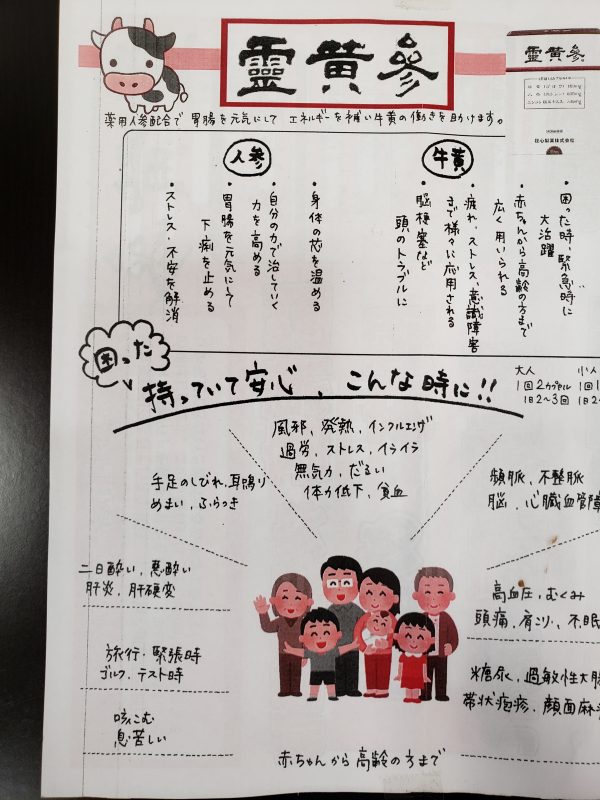 靈黄參
靈黄參
薬用人参配合で 胃腸を元気にして エネルギーを補い牛黄の働きを助けます。
牛黄
・困った時、緊急時に
大活躍
・赤ちゃんから高齢の方まで
広く用いられる
・疲れ、ストレス、意識障害
まで様々に応用される
・脳梗塞など
頭のトラブルに
人参
・身体の芯を温める
・自分の力で治していく
力を高める
・胃腸を元気にして
下痢を止める
・ストレス・不安を解消
困った
持っていて安心、こんな時に!!
大人
1回2カプセル
1日2〜3回
小人
1回1
1日2
風邪、発熱、インフルエンザ
過労、ストレス、イライラ
無気力、だるい
体力低下、貧血
手足のしびれ、耳鳴り
めまい、ふらつき
頻脈、不整脈
脳、心臓血管障
二日酔い、悪酔い
肝炎、肝硬変
高血圧、むくみ
頭痛、肩こり、不眠
旅行、緊張時
ゴルフ、テスト時
糖尿、過敏性大腸
帯状疱疹、顔面麻
咳こむ
息苦しい
赤ちゃんから高齢の方まで